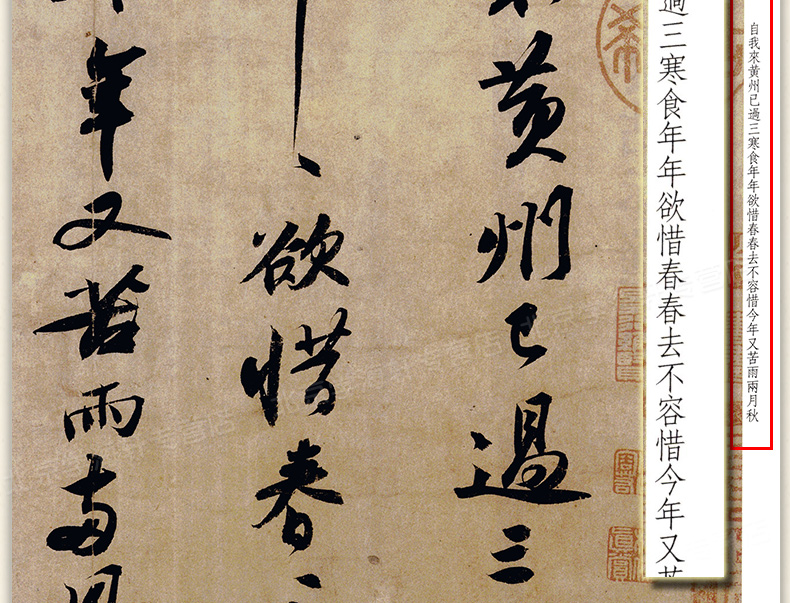 自我來黃州已過三寒食年年欲惜春春去不容惜今年又苦雨兩月秋
過三寒食年年欲惜春春去不容惜今年又苦
黃州已過三
欲惜春
年又苦雨兩月